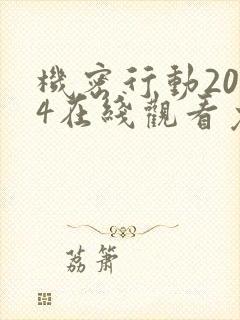 機密行動20
4在綫觀看
荔箫